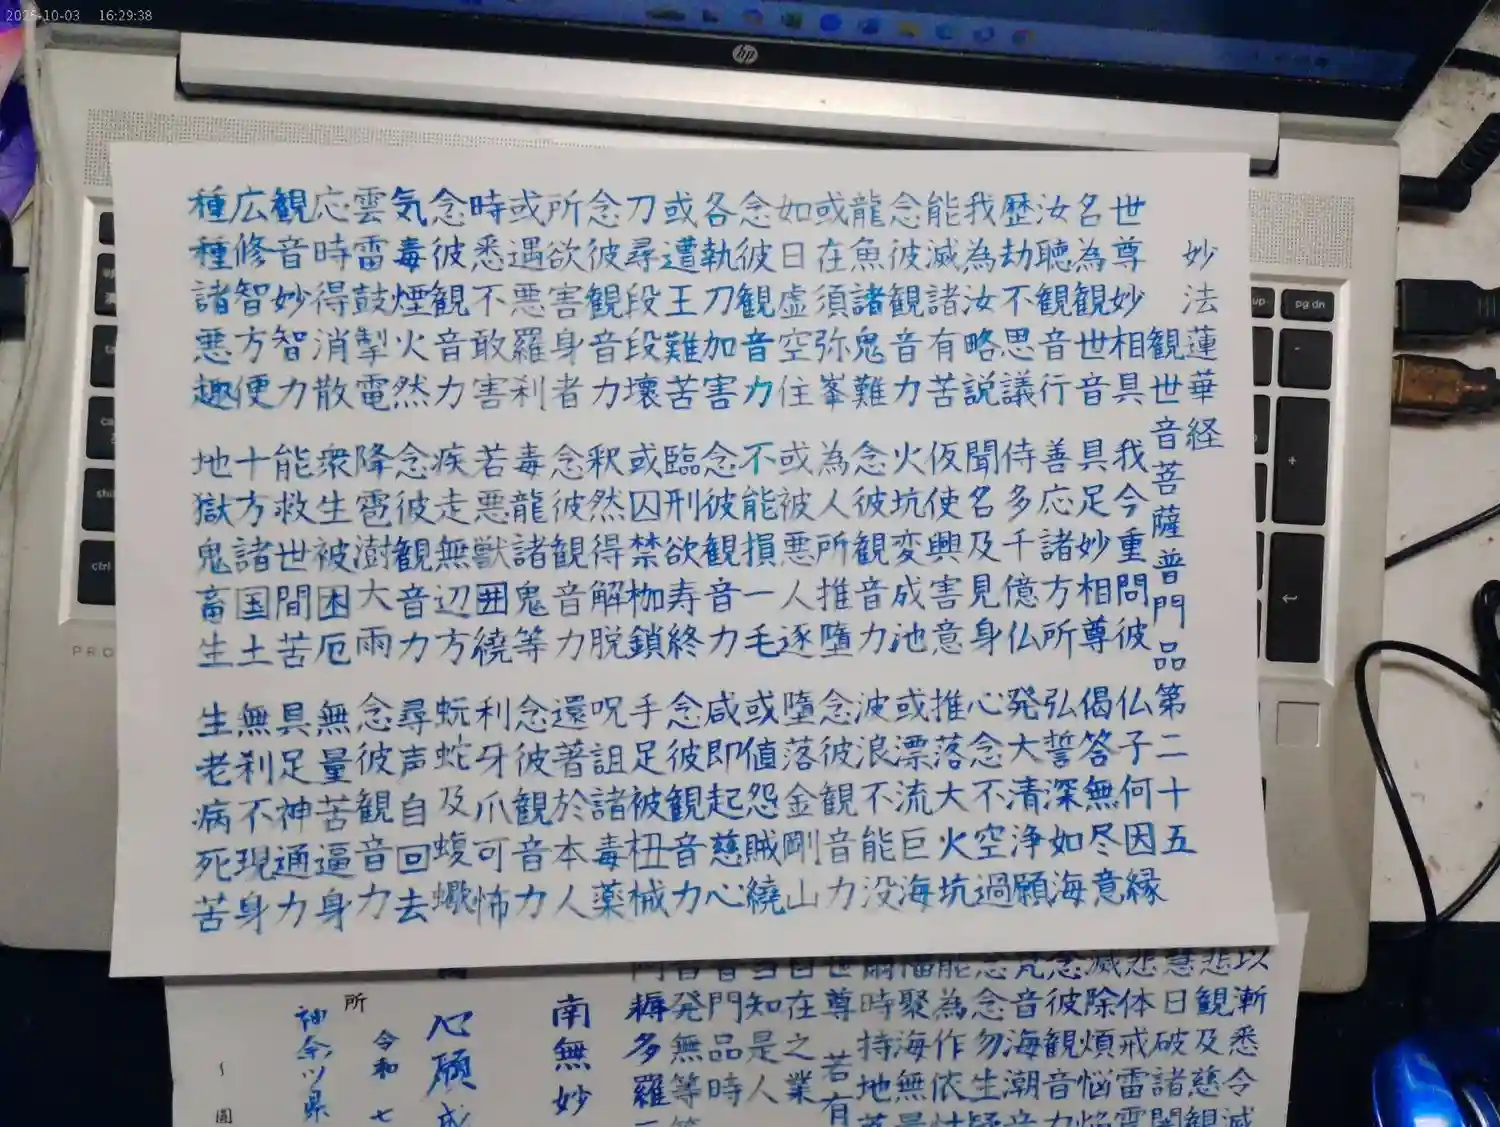 妙法蓮華経
観世音菩薩普門品第二十五
世尊妙相具 我今重問彼 仏子何因縁
名為観世音 具足妙相尊 偈答無尽意
汝聴観音行 善応諸方所 弘誓深如海
歴劫不思議 侍多千億仏 発大清浄願
我為汝略説 聞名及見身 心念不空過
能滅諸有苦 仮使興害意 推落大火坑
念彼観音力 火坑変成池 或漂流巨海
龍魚諸鬼難 念彼観音力 波浪不能没
或在須弥峯 為人所推墮 念彼観音力
如日虚空住 或被悪人逐 墮落金剛山
念彼観音力 不能損一毛 或値怨賊繞
各執刀加害 念彼観音力 咸即起慈心
或遭王難苦 臨刑欲寿終 念彼観音力
刀尋段段壊 或囚禁枷鎖 手足被杻械
念彼観音力 釈然得解脱 呪詛諸毒薬
所欲害身者 念彼観音力 還著於本人
或遇悪羅刹 毒龍諸鬼等 念彼観音力
時悉不敢害 若悪獣囲繞 利牙爪可怖
念彼観音力 疾走無辺方 蚖蛇及蝮蠍
気毒煙火然 念彼観音力 尋声自回去
雲雷鼓掣電 降雹澍大雨 念彼観音力
応時得消散 衆生被困厄 無量苦逼身
観音妙智力 能救世間苦 具足神通力
広修智方便 十方諸国土 無刹不現身
種種諸悪趣 地獄鬼畜生 生老病死苦
以漸悉令滅
悲観及慈観
慧日破諸闇
悲体戒雷
滅除煩悩焔
念彼観音力
音海潮音
念念勿生疑
能為作依怙
聚海無量
時持地菩
世尊 若有
自在之業
知是人
門品時
音発無等等
耨多羅
南無妙
心願成
令和七
神奈川県
所
圓
2025-10-03 16:29:38
hp
pg dn
ctrl